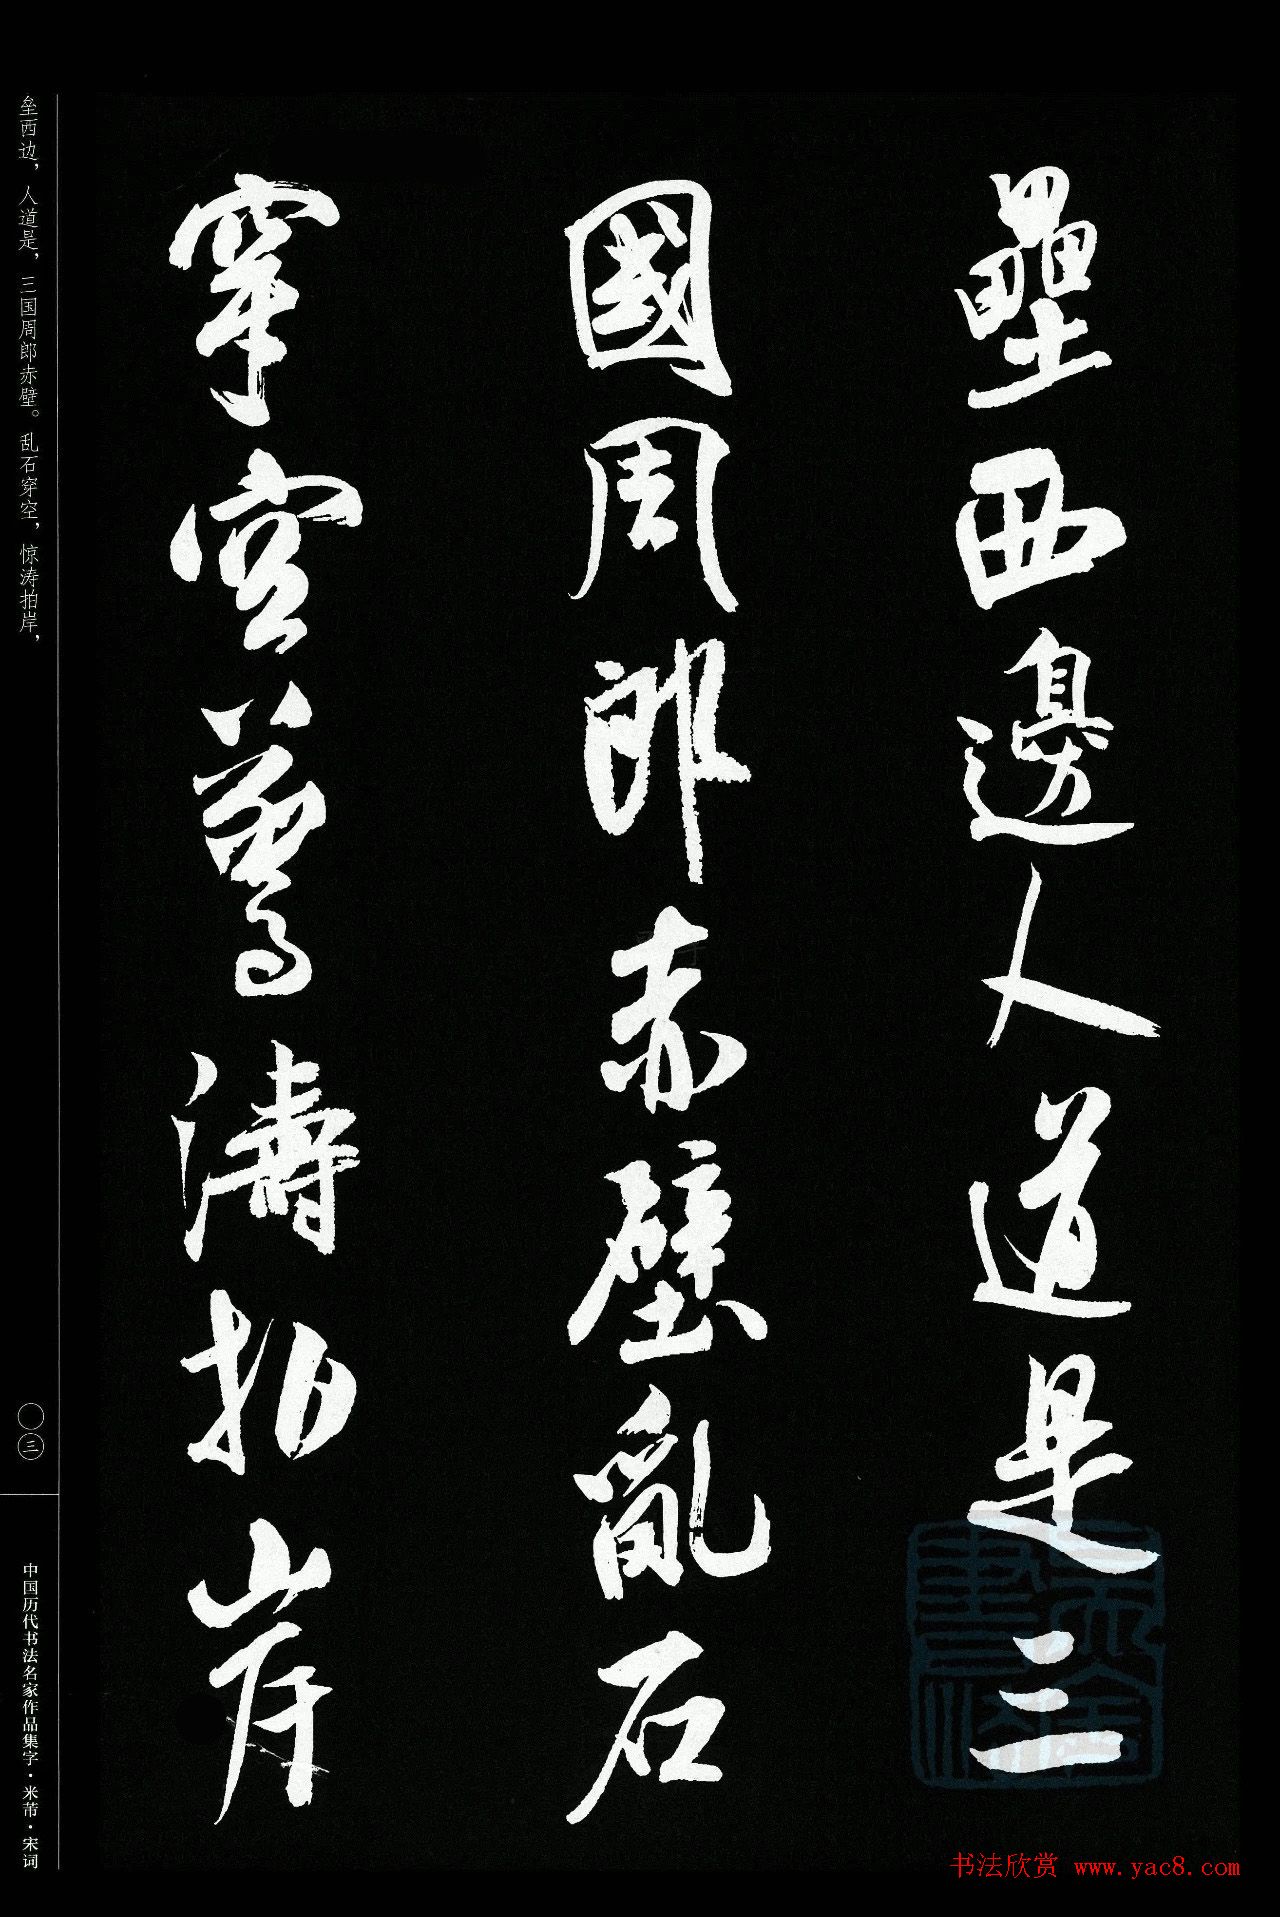 壘西邊人道是三
國周郎赤壁亂石
穿空驚濤拍岸
垒西边，人道是，三国周郎赤壁。乱石穿空，惊涛拍岸，
〇三
中国历代书法名家作品集字·米芾·宋词
书法欣赏 www.yac8.com